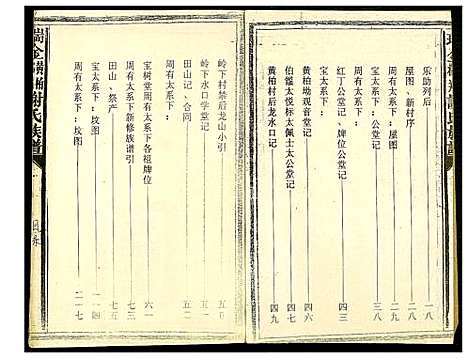 乐助列后……一八
屋图、新村序
周有太系下：屋图……三八
宝太系下：
红丁公堂记、牌位公堂记……四三
伯鎰太悦标太佩士太公堂记
黄柏坳观音堂记……四六
黄柏村后龙水口记……四九
岭下村禁后龙山小引……五〇
岭下水口学堂记……五一
田山记、合同……五二
宝树堂周有太系下各祖牌位……六一
周有太系下新修族谱引……七三
田山、祭产……七五
宝太系下：坟图……一一四
周有太系下：坟图……二一七
瑞金 谢氏族谱
目录